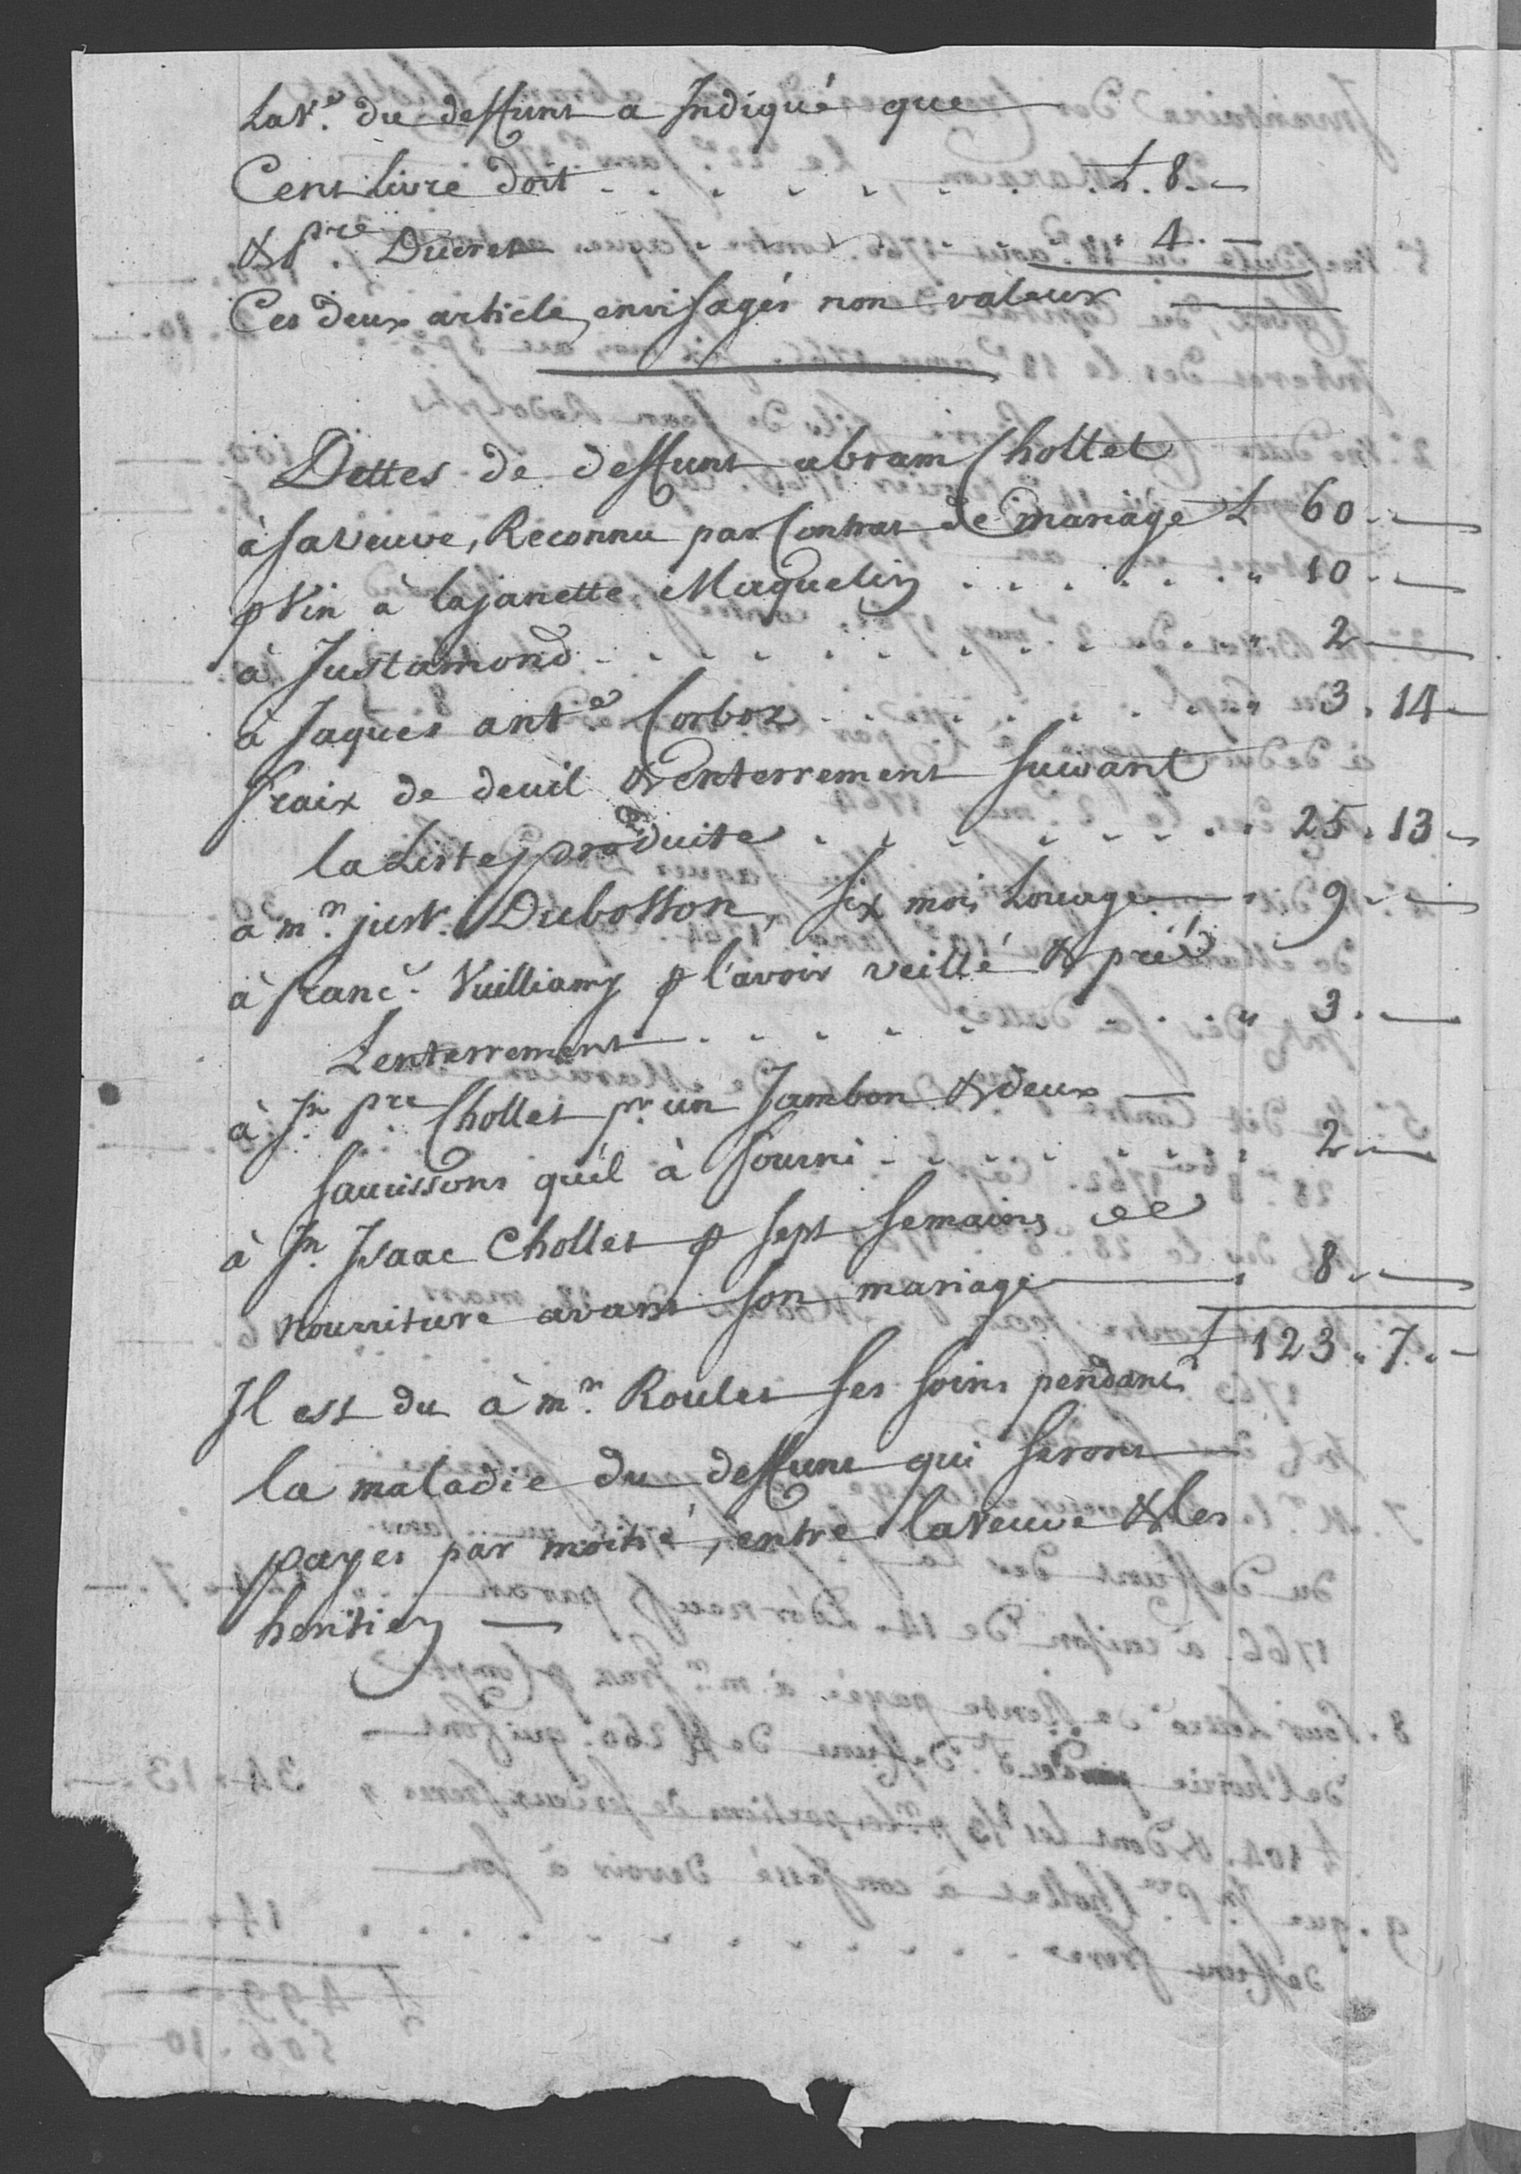 La V.e du deffunt a Indiqué que
Cent Livre doit . . . . . . . . . L. 8. —
& P.re Ducret 4. —
Ces deux article, envisagés non valeux —
Dettes de deffunt abram Chollet
à sa Veuve, Reconnu par Contrat de mariage L 60 . —
p Vin à la janette Maquelin . . . . . . " 10 . —
à Justamond . . . . . . . . . " 2 —
à Jaques ant.e Corboz . . . . . . 3 . 14 —
fraix de deuil & enterrement suivant
la Liste produite . . . . . . . . " 25 . 13 —
à m.r just. Dubosson, six mois Louage — " 9 . —
à franc. Vuilliamy p l'avoir veillé & prié
L'enterrement . . . . . . . . " 3 . —
à J.n P.re Chollet p.r un Jambon & deux —
saucissons qu'il à fourni . . . . . . . . 2 . —
à J.n Isaac Chollet p sept semaines de
nourriture avant son mariage — " 8 . —
L 123 . 7 . —
Il est du à m.r Roulet ses soins pendant
la maladie du deffunt qui seront —
payes par moitié, entre la Veuve & les
heritiers —